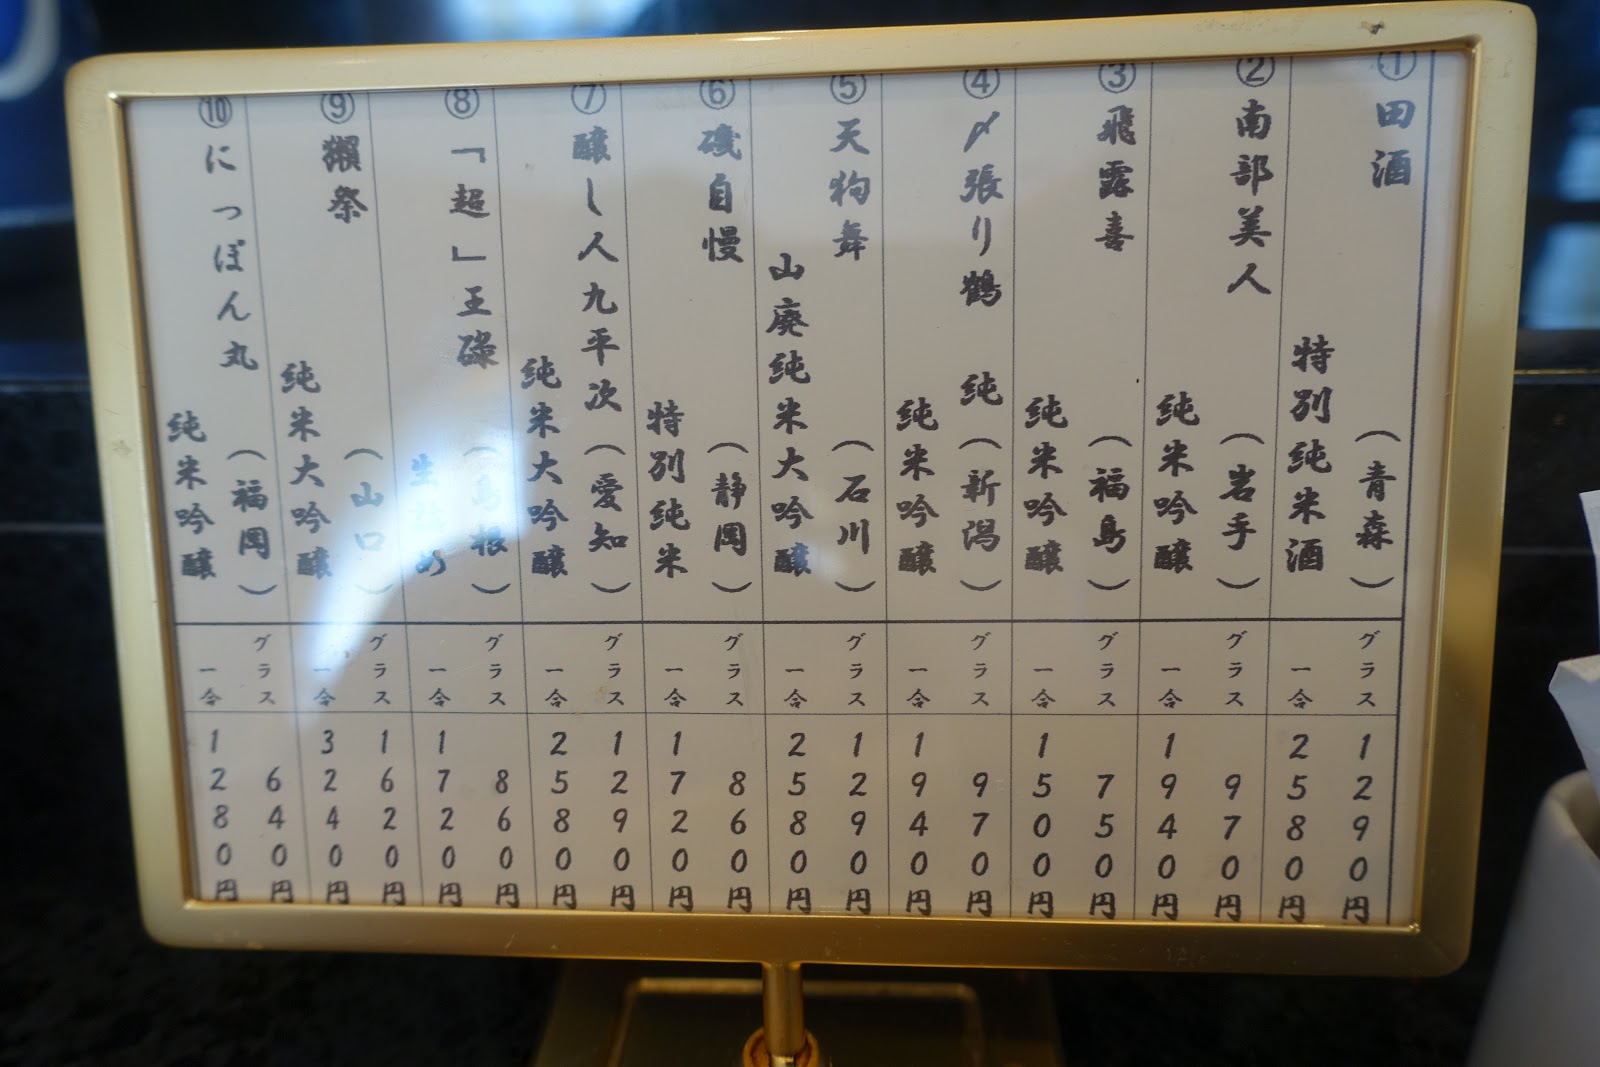 ①田酒
(青森)
特別純米酒
グラス
1290円
一合
2580円
②南部美人
(岩手)
純米吟醸
グラス
970円
一合
1940円
③飛露喜
(福島)
純米吟醸
グラス
750円
一合
1500円
④〆張り鶴 純
(新潟)
純米吟醸
グラス
970円
一合
1940円
⑤天狗舞
(石川)
山廃純米大吟醸
グラス
1290円
一合
2580円
⑥磯自慢
(静岡)
特別純米
グラス
860円
一合
1720円
⑦醸し人九平次
(愛知)
純米大吟醸
グラス
1290円
一合
2580円
⑧「超」王碌
(島根)
グラス
860円
一合
1720円
⑨獺祭
(山口)
純米大吟醸
グラス
1620円
一合
3240円
⑩にっぽん丸
(福岡)
純米吟醸
グラス
640円
一合
1280円